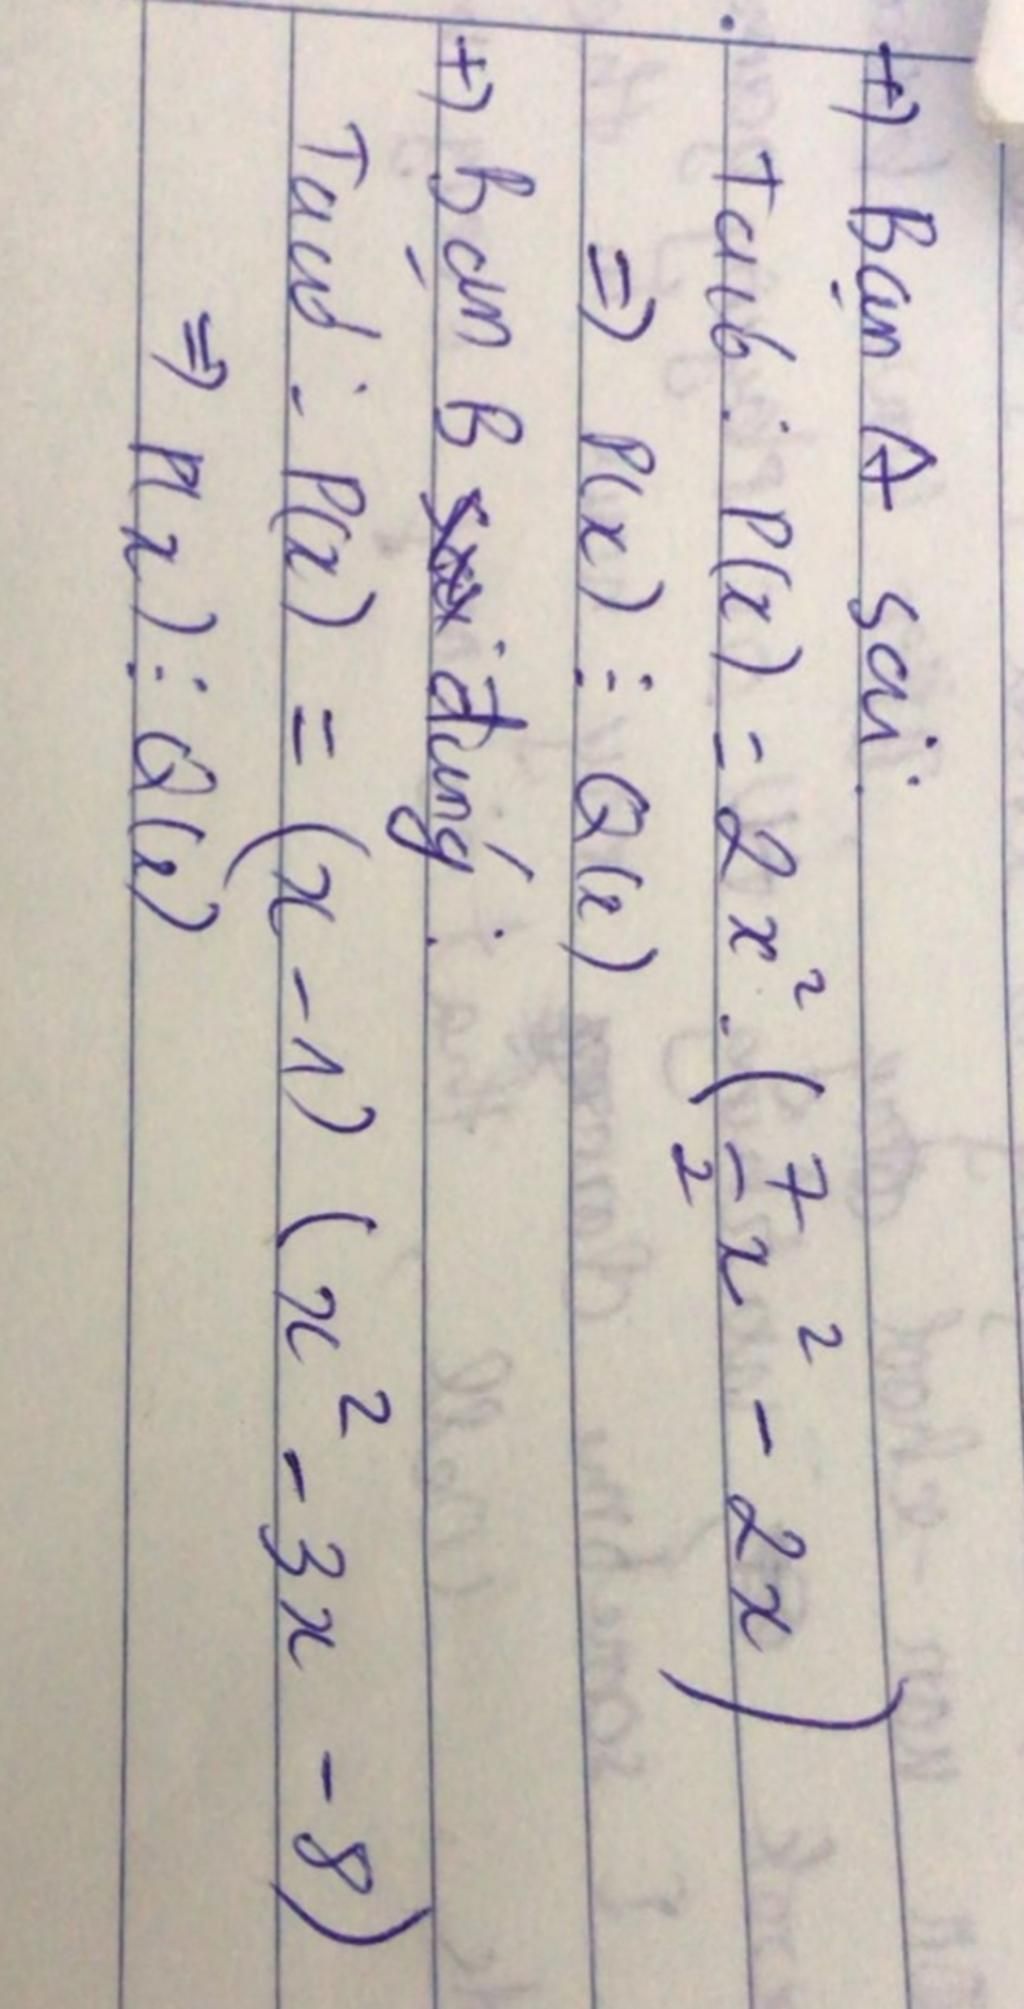 +) Bạn A sai.
Ta có: P(x) = 2x². (7/2 x² - 2x)
=> P(x) ⋮ Q(x)
+) Bạn B đúng:
Ta có: P(x) = (x - 1) (x² - 3x - 8)
=> P(x) ⋮ Q(x)